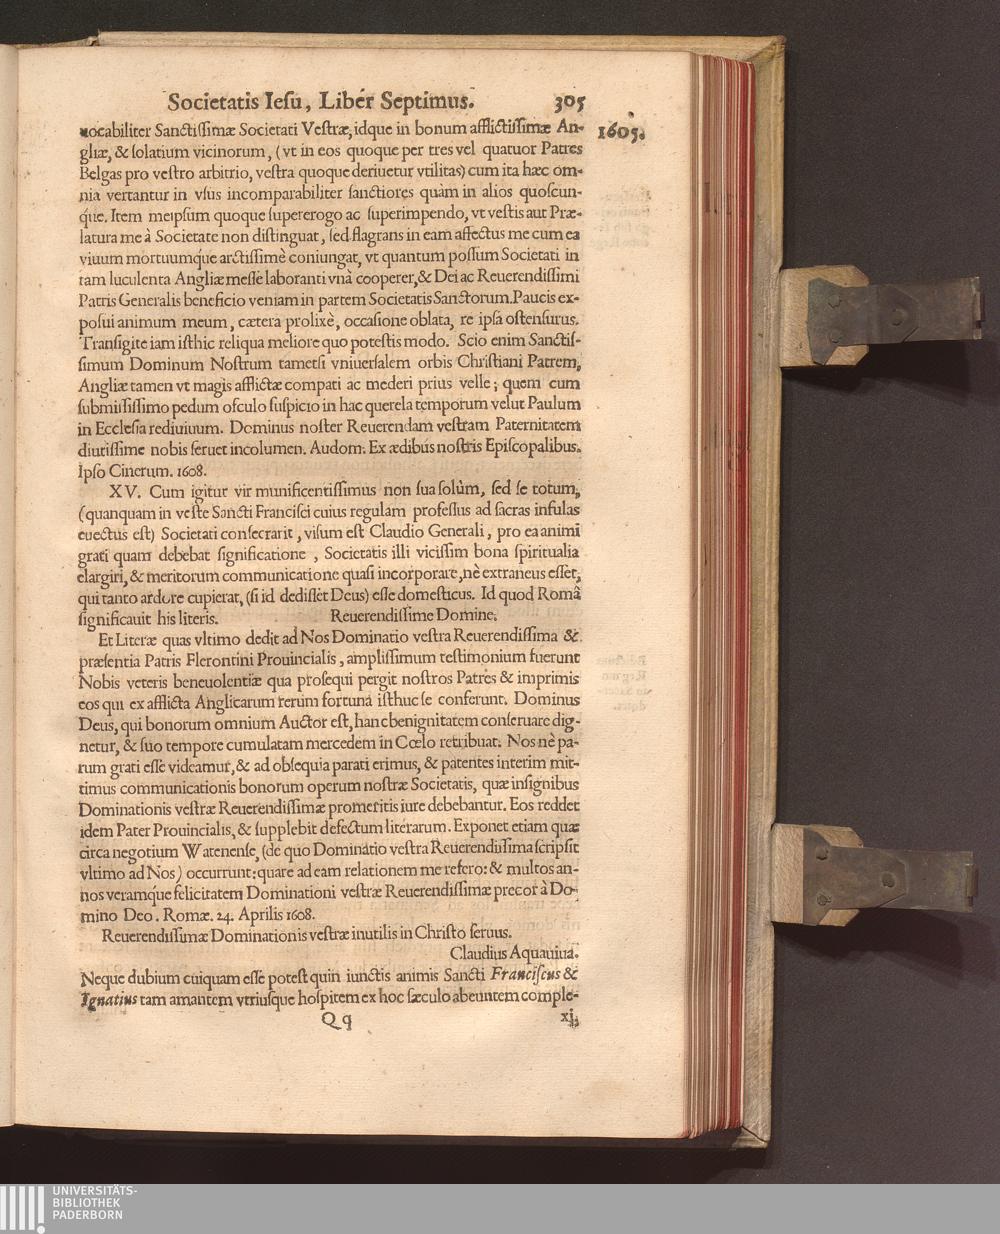 Societatis Iesu, Liber Septimus. 305
1605.
uocabiliter Sanctissimæ Societati Vestræ, idque in bonum afflictissimæ An-
gliæ, & solatium vicinorum, (vt in eos quoque per tres vel quatuor Patres
Belgas pro vestro arbitrio, vestra quoque deriuetur vtilitas) cum ita hæc om-
nia vertantur in vsus incomparabiliter sanctiores quàm in alios quoscun-
que. Item meipsum quoque supererogo ac superimpendo, vt vestis aut Præ-
latura me à Societate non distinguat, sed flagrans in eam affectus me cum ea
viuum mortuumque arctissimè coniungat, vt quantum possum Societati in
tam luculenta Angliæ messe laboranti vnà cooperer, & Dei ac Reuerendissimi
Patris Generalis beneficio veniam in partem Societatis Sanctorum. Paucis ex-
posui animum meum, cætera prolixè, occasione oblata, re ipsa ostensurus.
Transigite iam isthic reliqua meliore quo potestis modo. Scio enim Sanctis-
simum Dominum Nostrum tametsi vniuersalem orbis Christiani Patrem,
Angliæ tamen vt magis afflictæ compati ac mederi prius velle; quem cum
submississimo pedum osculo suspicio in hac querela temporum velut Paulum
in Ecclesia rediuiuum. Dominus noster Reuerendam vestram Paternitatem
diutissime nobis seruet incolumen. Audom. Ex ædibus nostris Episcopalibus.
Ipso Cinerum. 1608.
XV. Cum igitur vir munificentissimus non sua solùm, sed se totum,
(quanquam in veste Sancti Francisci cuius regulam professus ad sacras infulas
euectus est) Societati consecrarit, visum est Claudio Generali, pro ea animi
grati quam debebat significatione, Societatis illi vicissim bona spiritualia
elargiri, & meritorum communicatione quasi incorporare, nè extraneus esset,
qui tanto ardore cupierat, (si id dedisset Deus) esse domesticus. Id quod Româ
significauit his literis. Reuerendissime Domine.
Et Literæ quas vltimo dedit ad Nos Dominatio vestra Reuerendissima &
præsentia Patris Flerontini Prouincialis, amplissimum testimonium fuerunt
Nobis veteris beneuolentiæ qua prosequi pergit nostros Patres & imprimis
eos qui ex afflicta Anglicarum rerum fortuna isthuc se conferunt. Dominus
Deus, qui bonorum omnium Auctor est, hanc benignitatem conseruare dig-
netur, & suo tempore cumulatam mercedem in Cœlo retribuat. Nos nè pa-
rum grati esse videamur, & ad obsequia parati erimus, & patentes interim mit-
timus communicationis bonorum operum nostræ Societatis, quæ insignibus
Dominationis vestræ Reuerendissimæ promeritis iure debebantur. Eos reddet
idem Pater Prouincialis, & supplebit defectum literarum. Exponet etiam quæ
circa negotium Watenense, (de quo Dominatio vestra Reuerendissima scripsit
vltimo ad Nos) occurrunt: quare ad eam relationem me refero: & multos an-
nos veramque felicitatem Dominationi vestræ Reuerendissimæ precor à Do-
mino Deo. Romæ. 24. Aprilis 1608.
Reuerendissimæ Dominationis vestræ inutilis in Christo seruus.
Claudius Aquauiua.
Neque dubium cuiquam esse potest quin iunctis animis Sancti Franciscus &
Ignatius tam amantem vtriusque hospitem ex hoc sæculo abeuntem comple-
Qq xi,
UNIVERSITÄTS-
BIBLIOTHEK
PADERBORN